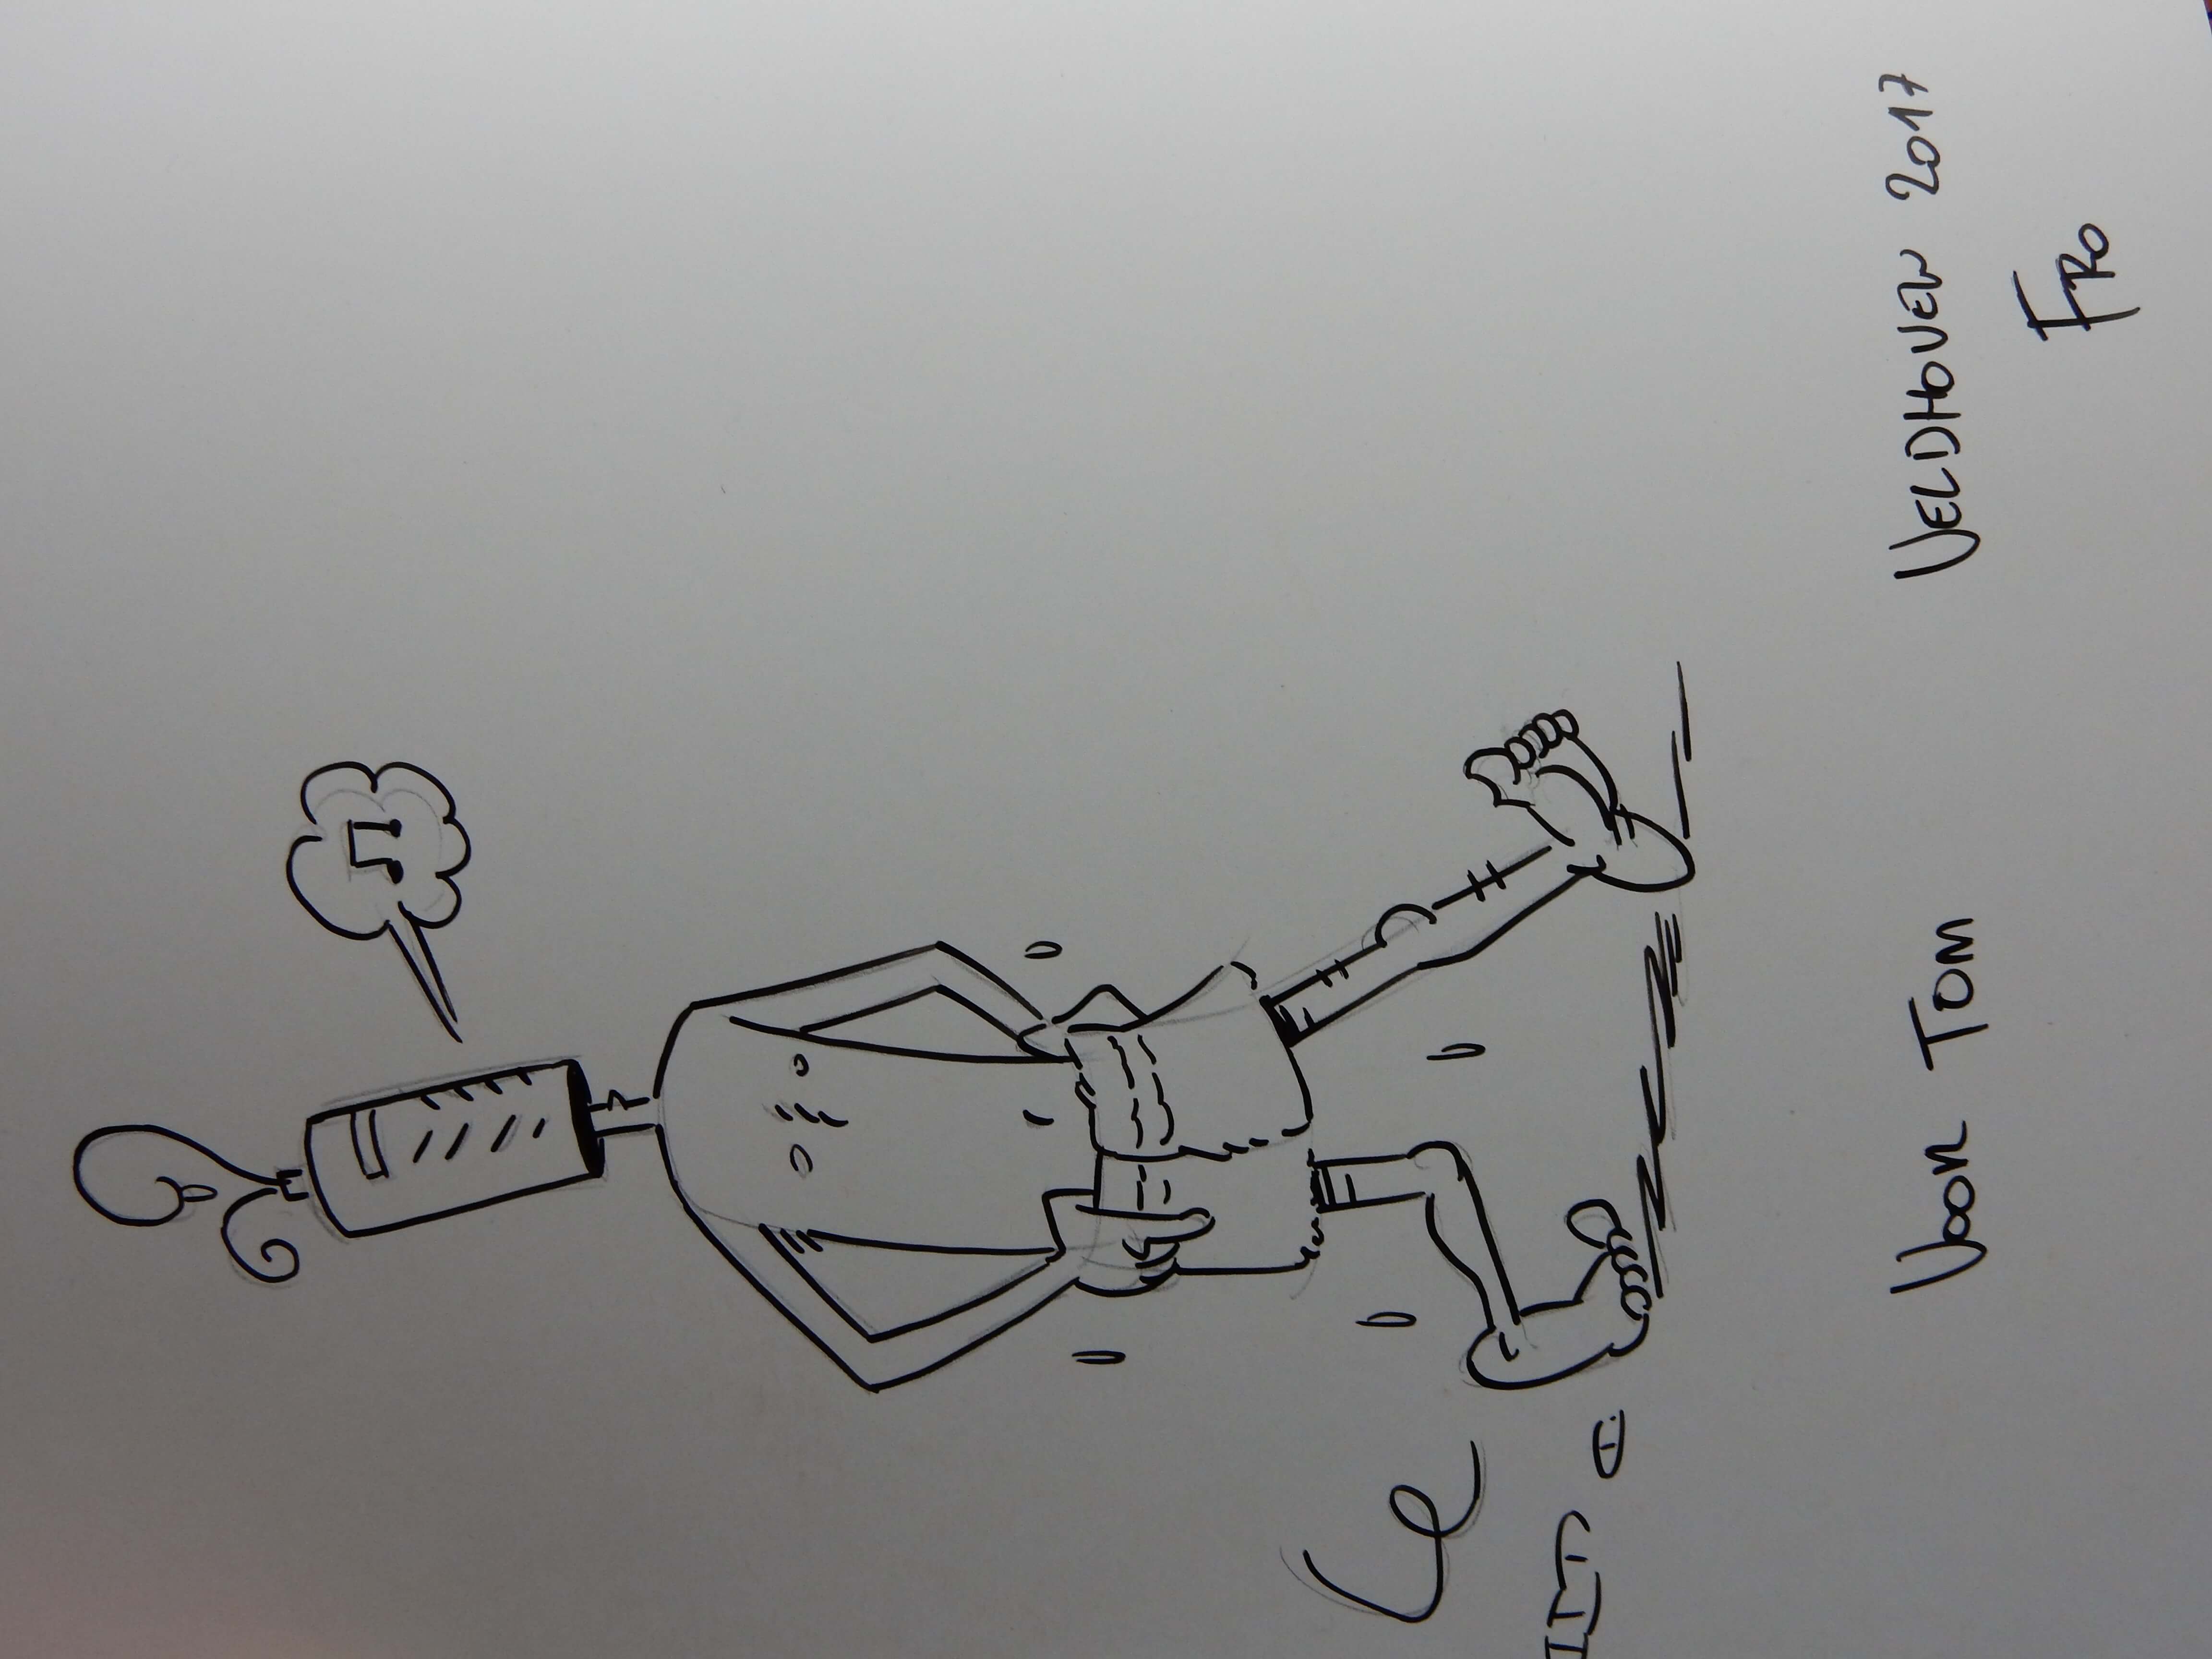 VOOR TOM
VELDHOVEN 2017
FRO